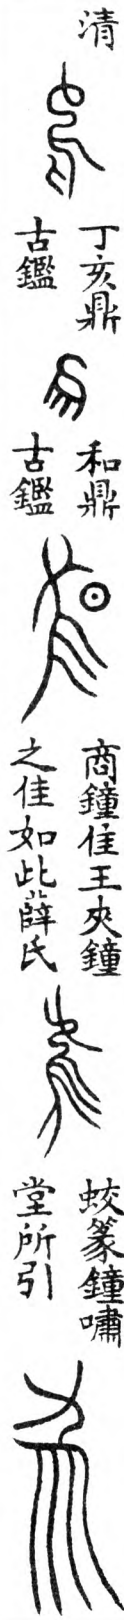 清
丁亥鼎
古鑑
和鼎
古鑑
商鐘隹王夾鐘
之隹如此薛氏
蛟篆鐘嘯
堂所引